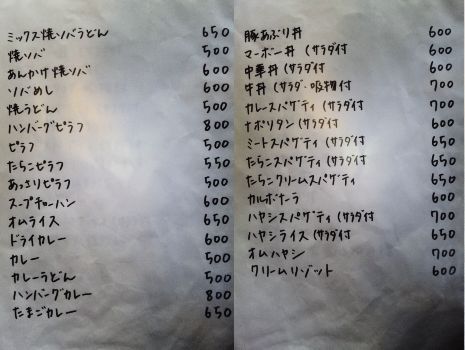 ミックス焼ソバうどん 650
焼ソバ 500
あんかけ焼ソバ 600
ソバめし 600
焼うどん 500
ハンバーグピラフ 800
ピラフ 500
たらこピラフ 550
あっさりピラフ 500
スープチャーハン 600
オムライス 650
ドライカレー 600
カレー 500
カレーうどん 500
ハンバーグカレー 800
たまごカレー 650
豚あぶり丼 600
マーボー丼 (サラダ付 600
中華丼 (サラダ付 600
牛丼 (サラダ・吸物付 700
カレースパゲティ (サラダ付 700
ナポリタン (サラダ付 600
ミートスパゲティ (サラダ付 650
たらこスパゲティ (サラダ付 650
たらこクリームスパゲティ 650
カルボナーラ 600
ハヤシスパゲティ (サラダ付 700
ハヤシライス (サラダ付 650
オムハヤシ 700
クリームリゾット 600